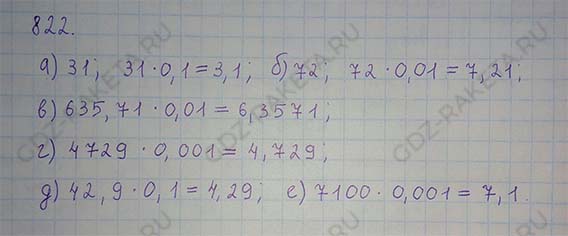 822.
а) 31; 31 · 0,1 = 3,1; б) 72; 72 · 0,01 = 7,21;
в) 635,71 · 0,01 = 6,3571;
г) 4729 · 0,001 = 4,729;
д) 42,9 · 0,1 = 4,29; е) 7100 · 0,001 = 7,1.
GDZ-RAKETA.RU
GDZ-RAKETA.RU
GDZ-RAKETA.RU